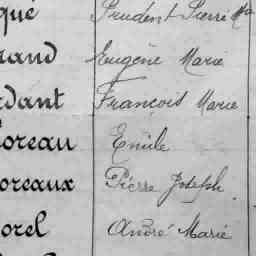 qué Prudent Pierre Ma
rand Eugène Marie
rdant François Marie
oreau Emile
oreaux Pierre Joseph
orel André Marie